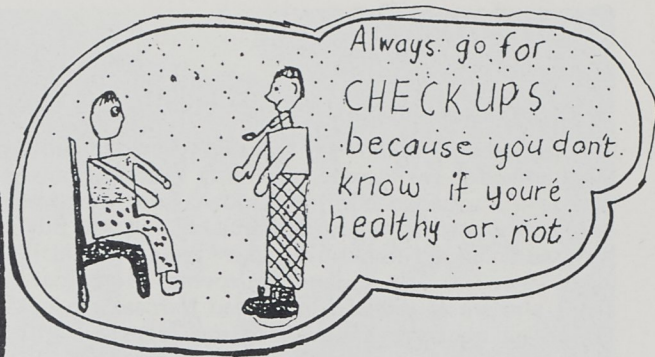 Always go for
CHECK UPS
because you don't
know if you're
healthy or not